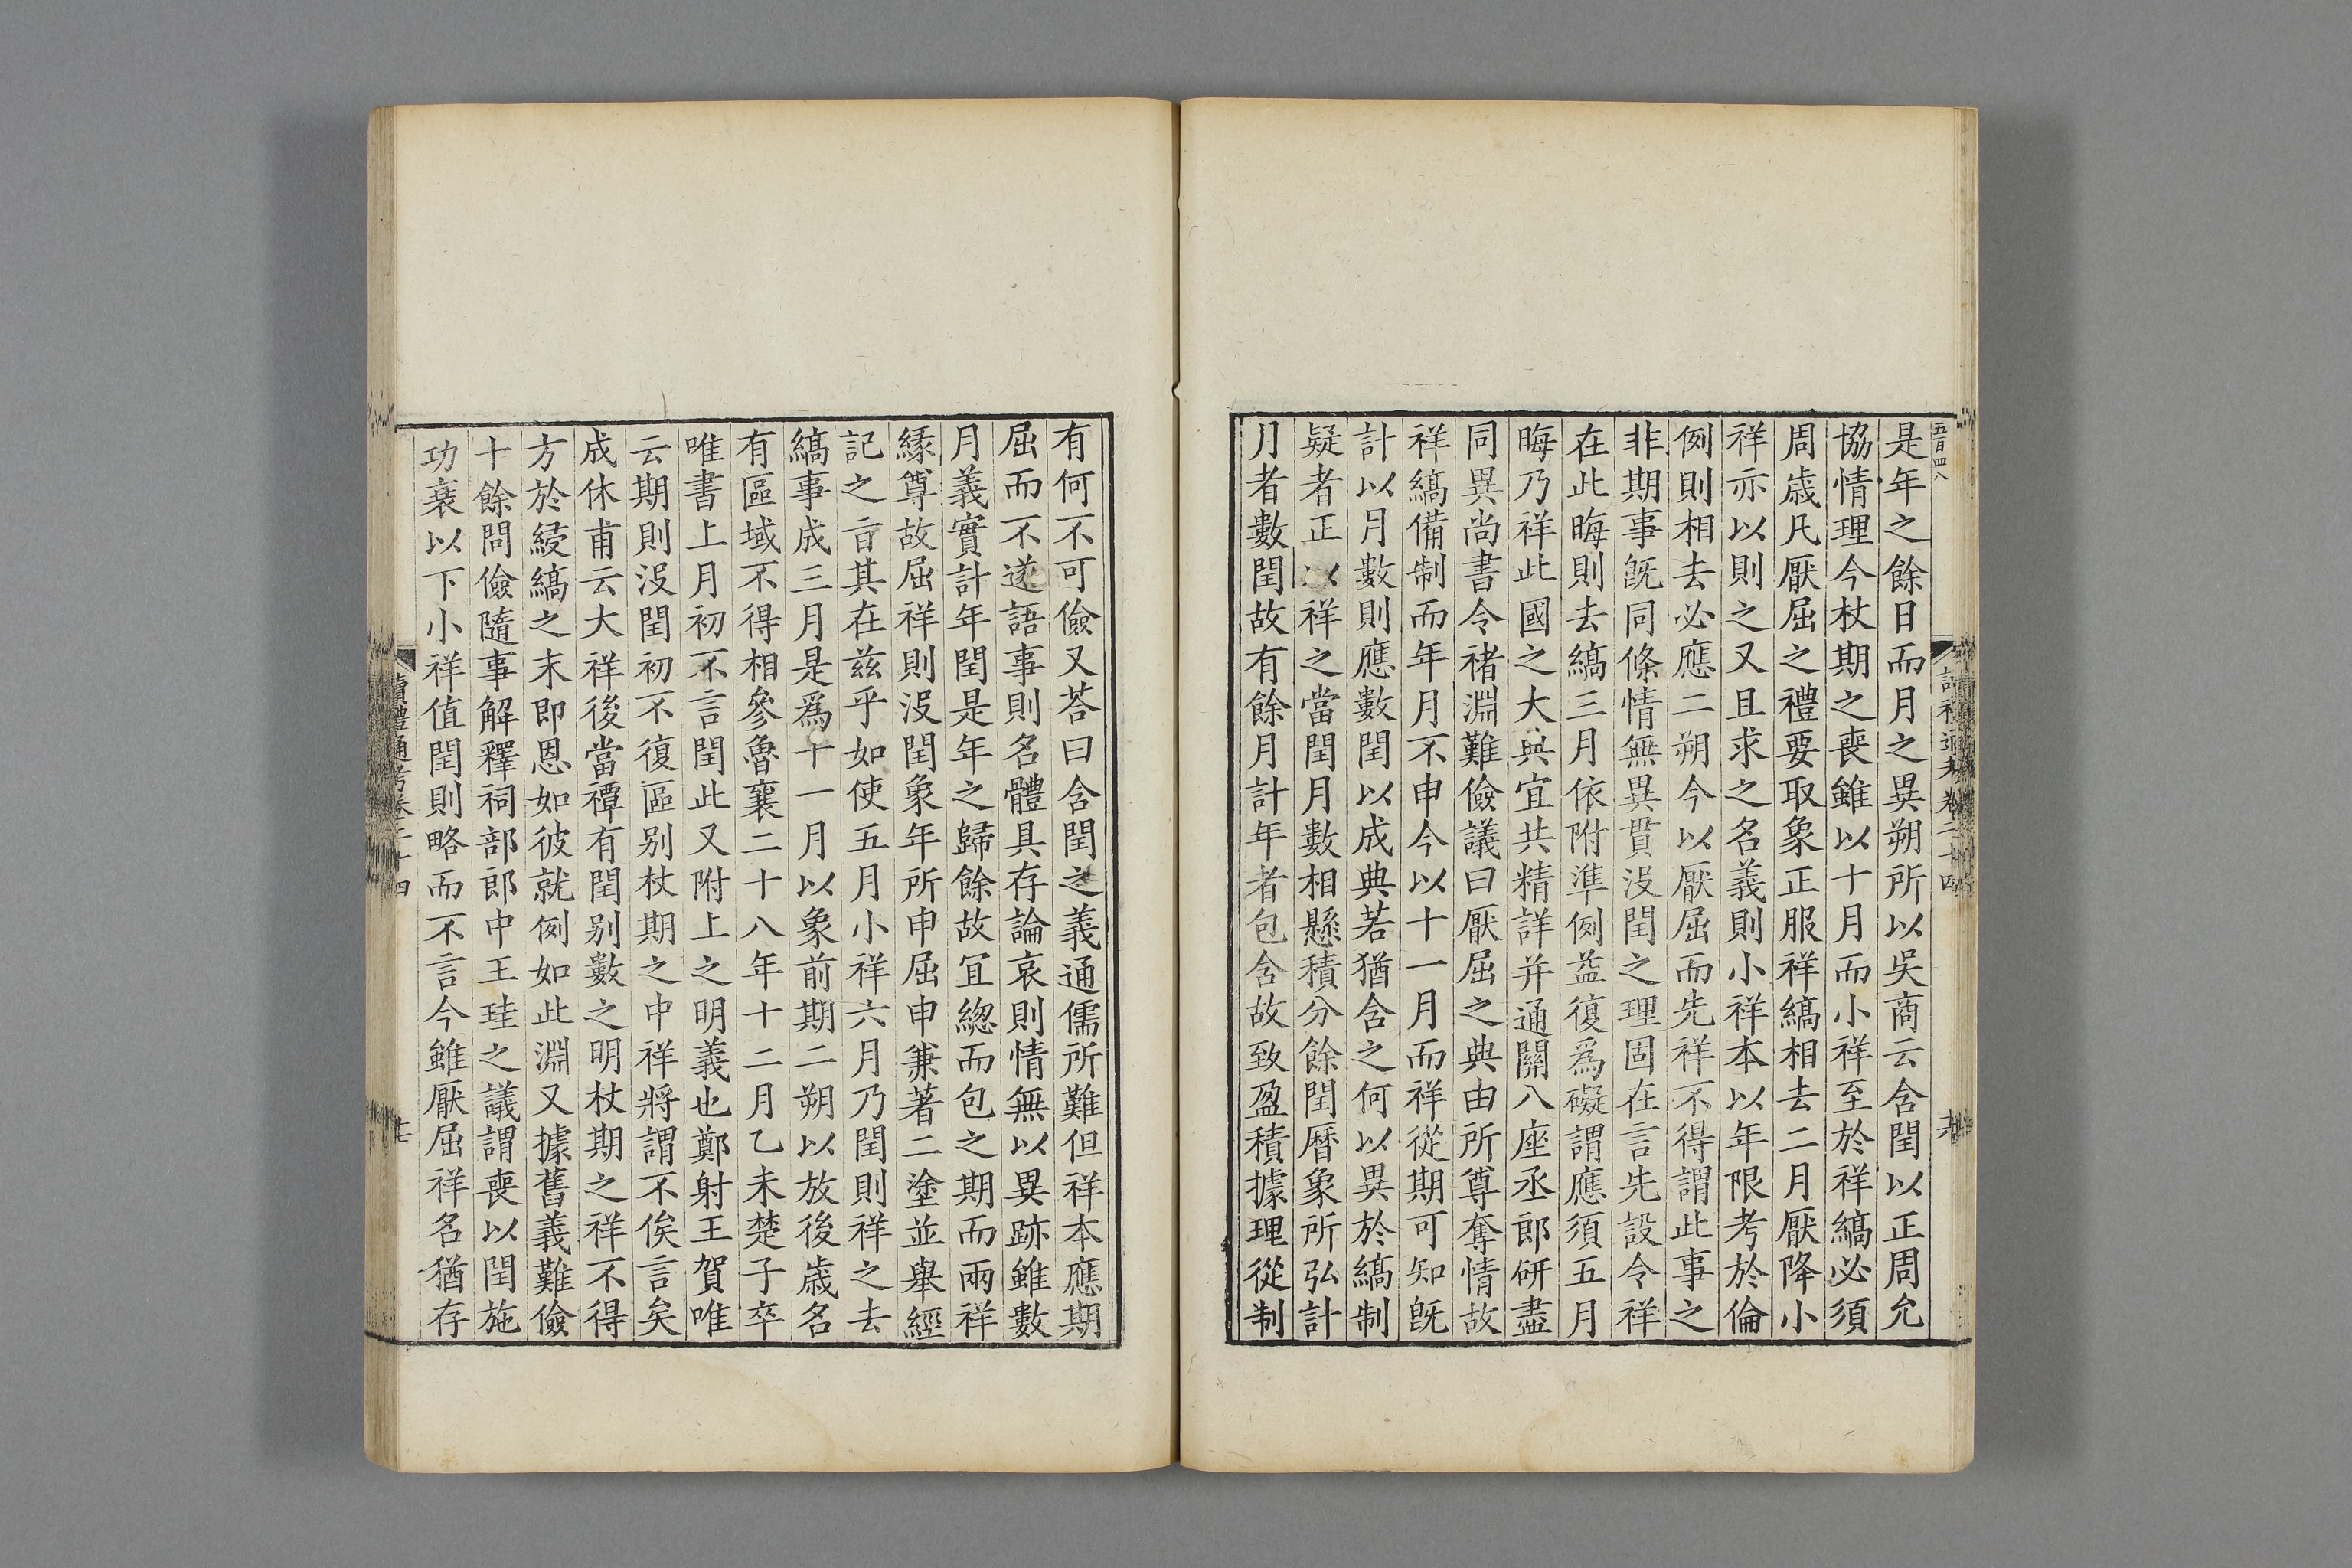 五百四八
是年之餘日而月之異朔所以吳商云含閏以正周允
協情理今杖期之喪雖以十月而小祥至於祥縞必須
周歲凡厭屈之禮要取象正服祥縞相去二月厭降小
祥亦以則之又且求之名義則小祥本以年限考於倫
例則相去必應二朔今以厭屈而先祥不得謂此事之
非期事既同條情無異貫没閏之理固在言先設令祥
在此晦則去縞三月依附準例益復爲礙謂應須五月
晦乃祥此國之大典宜共精詳并通關八座丞郎研盡
同異尚書令褚淵難儉議曰厭屈之典由所尊奪情故
祥縞備制而年月不申今以十一月而祥從期可知既
計以月數則應數閏以成典若猶含之何以異於縞制
疑者正以祥之當閏月數相懸積分餘閏曆象所弘計
月者數閏故有餘月計年者包含故致盈積據理從制
有何不可儉又荅曰含閏之義通儒所難但祥本應期
屈而不遂語事則名體具存論哀則情無以異跡雖數
月義實計年閏是年之歸餘故宜緫而包之期而兩祥
緣尊故屈祥則没閏象年所申屈申兼著二塗並舉經
記之㫖其在兹乎如使五月小祥六月乃閏則祥之去
縞事成三月是爲十一月以象前期二朔以放後歲名
有區域不得相參魯襄二十八年十二月乙未楚子卒
唯書上月初不言閏此又附上之明義也鄭射王賀唯
云期則没閏初不復區别杖期之中祥將謂不俟言矣
成休甫云大祥後當禫有閏别數之明杖期之祥不得
方於綅縞之末即恩如彼就例如此淵又據舊義難儉
十餘問儉隨事解釋祠部郎中王珪之議謂喪以閏施
功衰以下小祥值閏則略而不言今雖厭屈祥名猶存
讀禮通考卷二十四